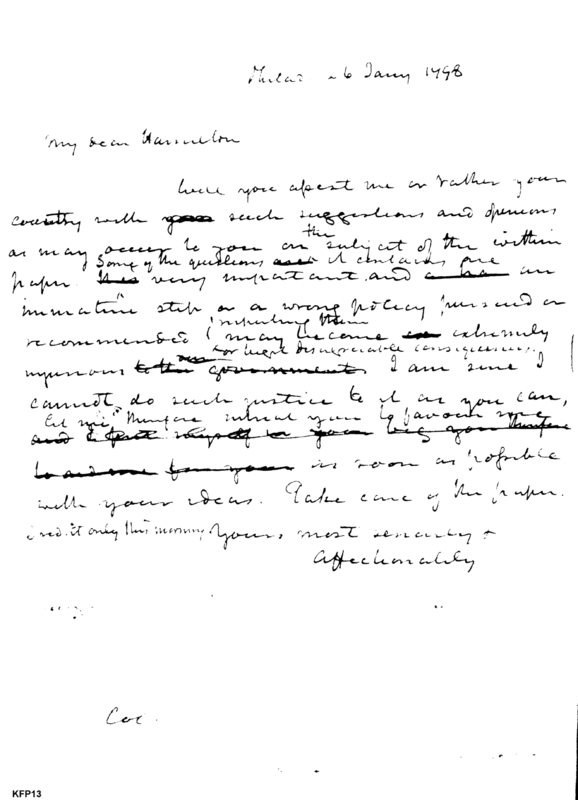 Philad. 26 Jany 1798
My dear Hamilton
Will you assist me or rather your
country with such suggestions and opinions
as may occur to you on the subject of the within
paper. Some of the questions it contains are
very important and an
immature step or a wrong policy pursued or
recommended respecting them may become extremely
injurious or beget disagreeable consequences. I am sure I
cannot do such justice to it as you can,
Let me, therefore intreat you to favour me
as soon as possible
with your ideas. Take care of the paper.
I recd. it only this morning. Yours, most sincerely &
Affectionately
KFP13